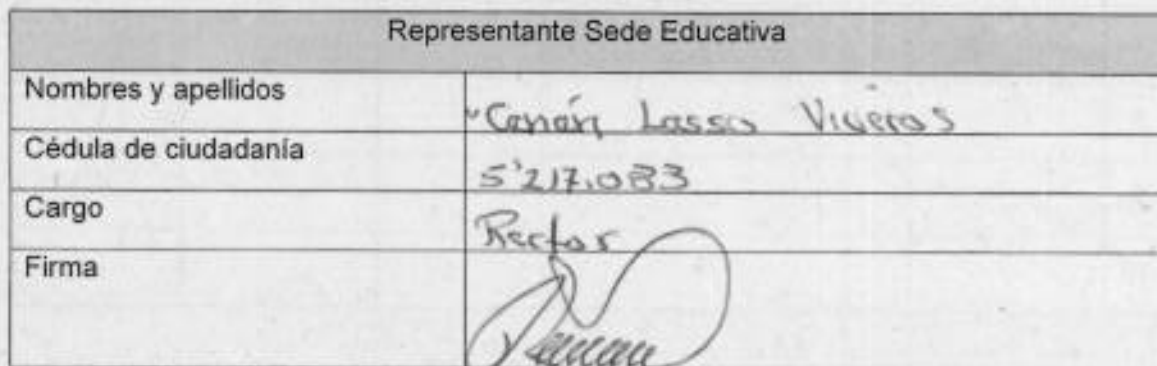 Representante Sede Educativa
Nombres y apellidos
Canán Lasso Viveros
Cédula de ciudadanía
5'217.083
Cargo
Rector
Firma